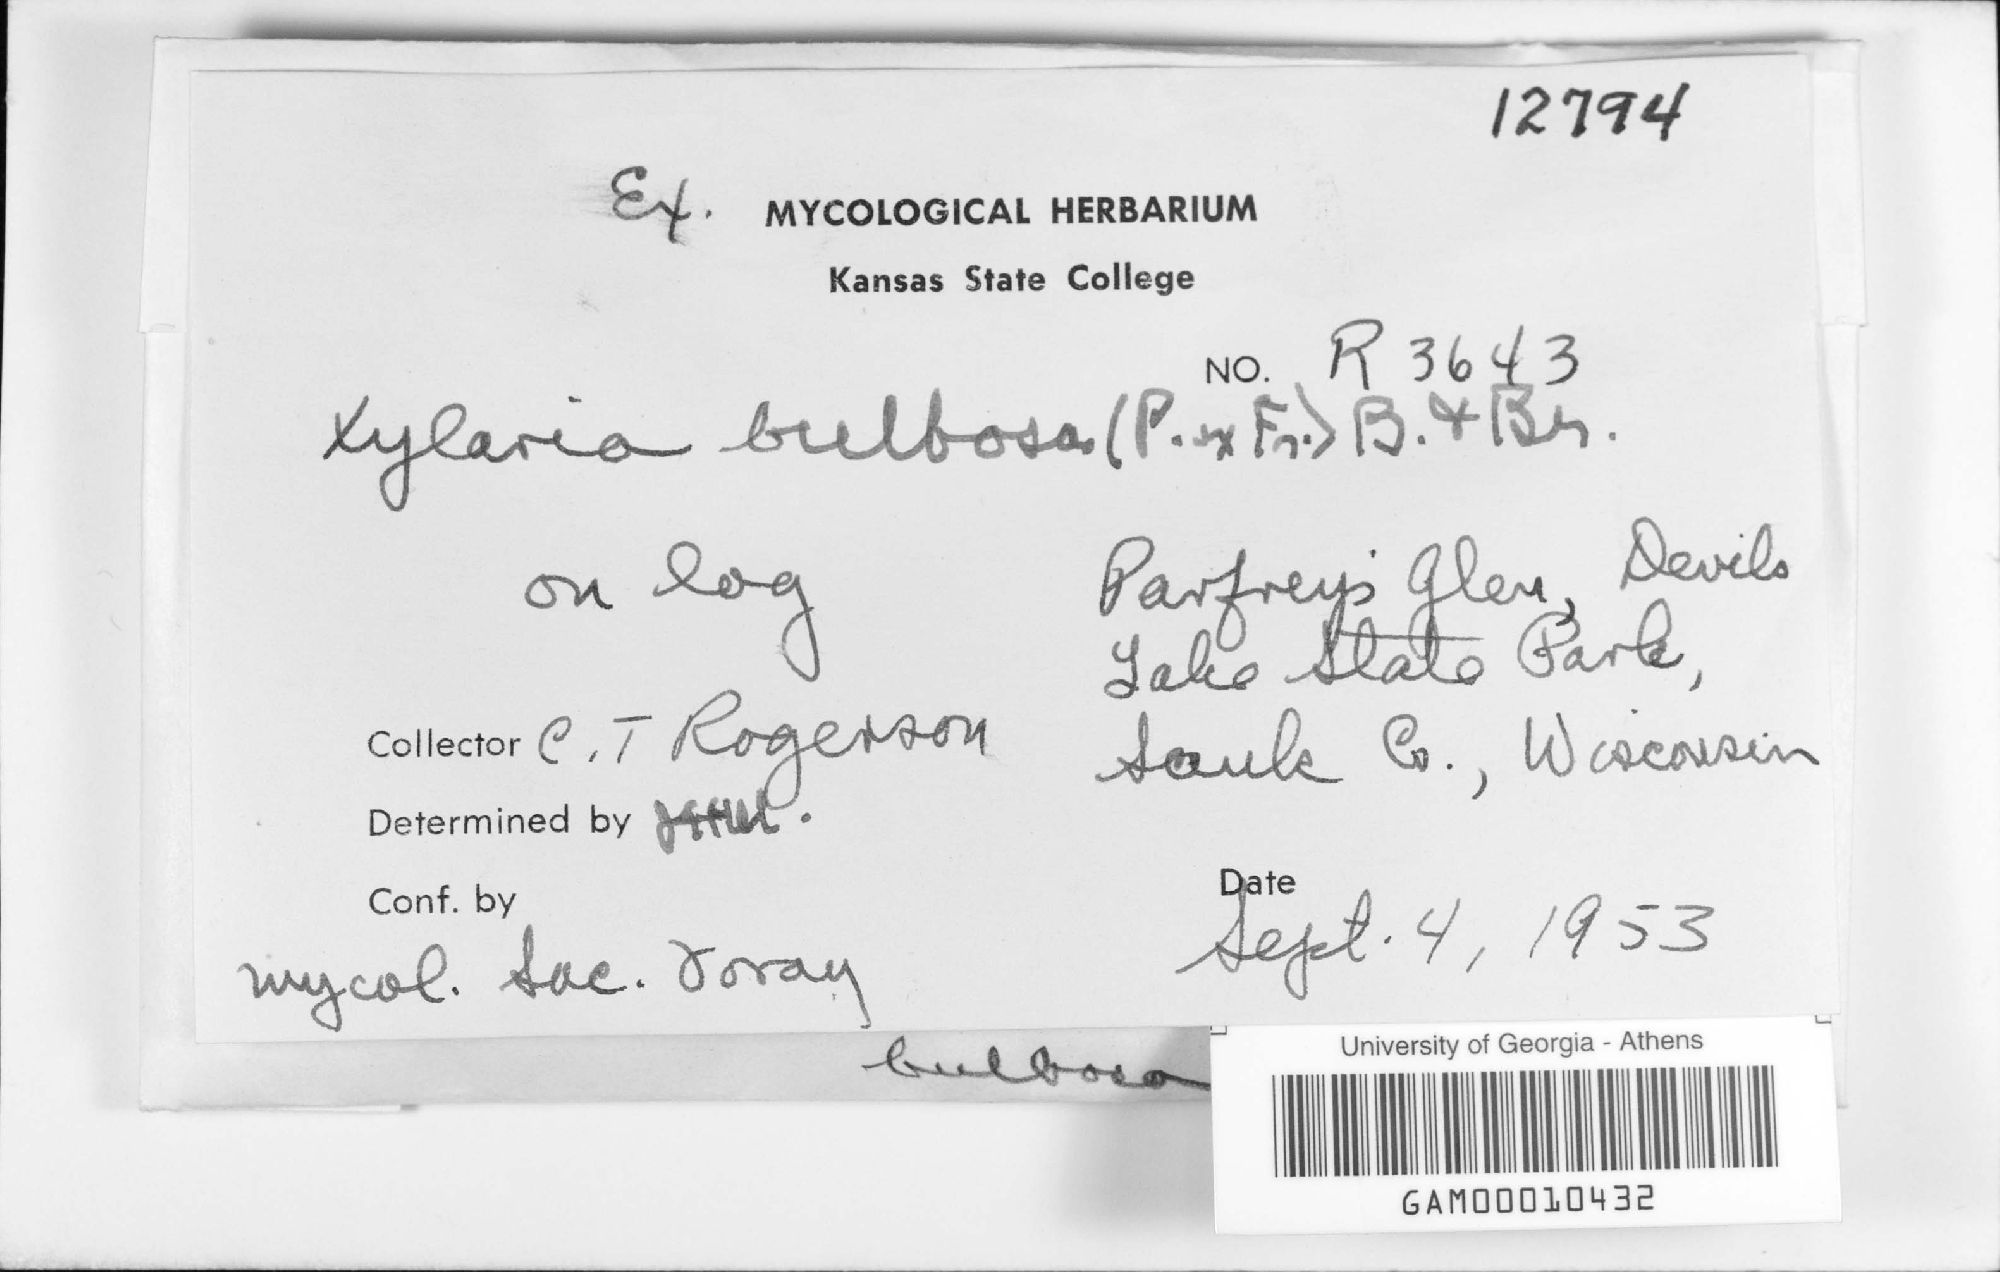 12794
Ex. MYCOLOGICAL HERBARIUM
Kansas State College
NO. R 3643
Xylaria bulbosa (P. ex Fr.) B. & Br.
on log
Parfreys Glen, Devils
Lake State Park,
Sauk Co., Wisconsin
Collector C. T Rogerson
Determined by
Conf. by
Date
Sept. 4, 1953
Mycol. Soc. Foray
bulbosa
University of Georgia - Athens
GAM00010432